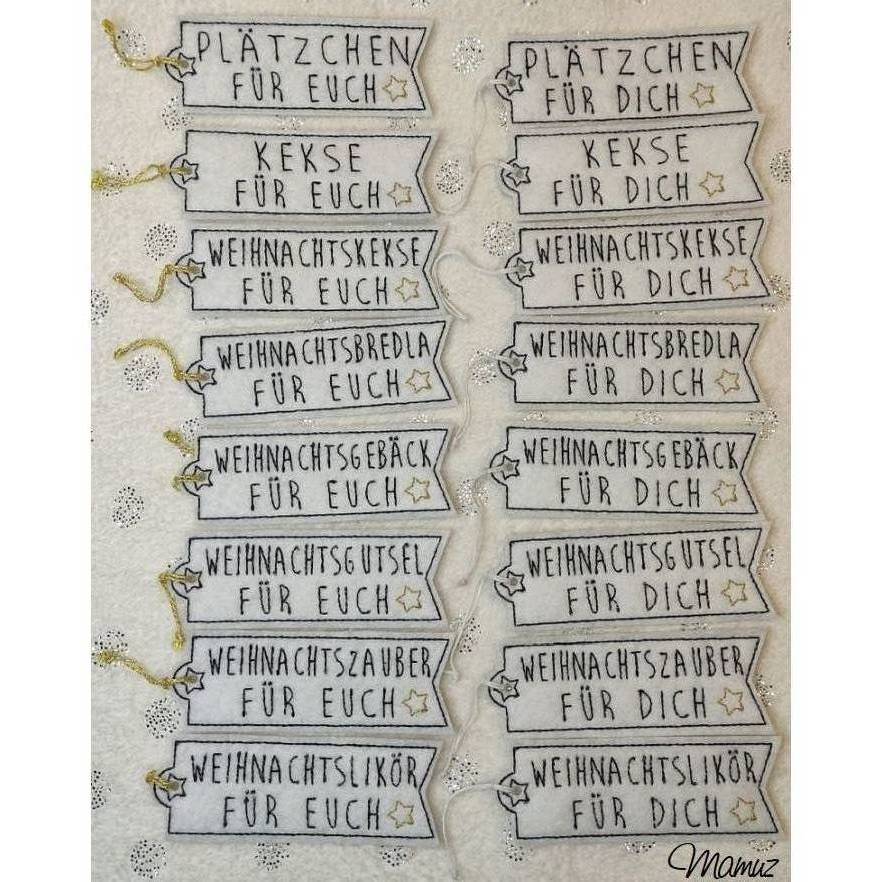 PLÄTZCHEN
FÜR EUCH
PLÄTZCHEN
FÜR DICH
KEKSE
FÜR EUCH
KEKSE
FÜR DICH
WEIHNACHTSKEKSE
FÜR EUCH
WEIHNACHTSKEKSE
FÜR DICH
WEIHNACHTSBREDLA
FÜR EUCH
WEIHNACHTSBREDLA
FÜR DICH
WEIHNACHTSGEBÄCK
FÜR EUCH
WEIHNACHTSGEBÄCK
FÜR DICH
WEIHNACHTSGUTSEL
FÜR EUCH
WEIHNACHTSGUTSEL
FÜR DICH
WEIHNACHTSZAUBER
FÜR EUCH
WEIHNACHTSZAUBER
FÜR DICH
WEIHNACHTSLIKÖR
FÜR EUCH
WEIHNACHTSLIKÖR
FÜR DICH
Mamuz